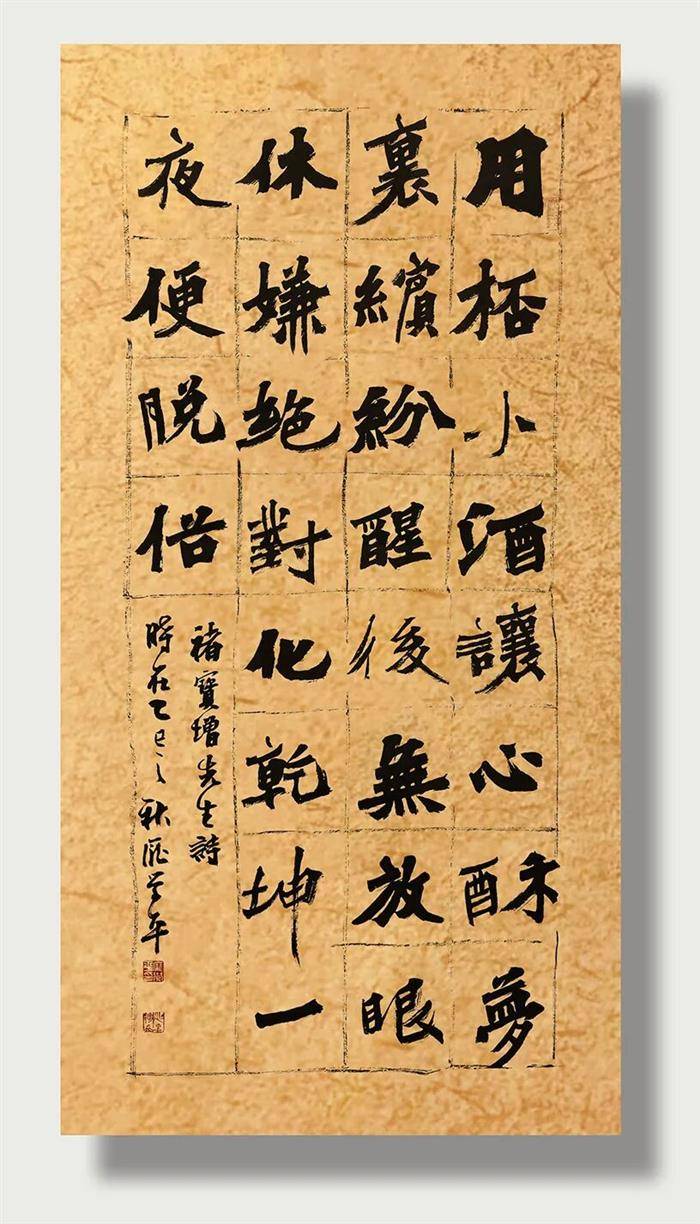 用杯小酒讓心酥夢
裏繽紛醒後無放眼
休嫌絶對化乾坤一
夜便脱俗
褚寶增先生詩
時在乙巳之秋